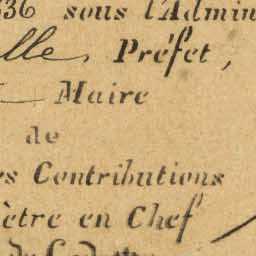 836 sous l'Admin
lle, Préfet,
Maire
de
es Contributions
ètre en Chef
du Cadastre